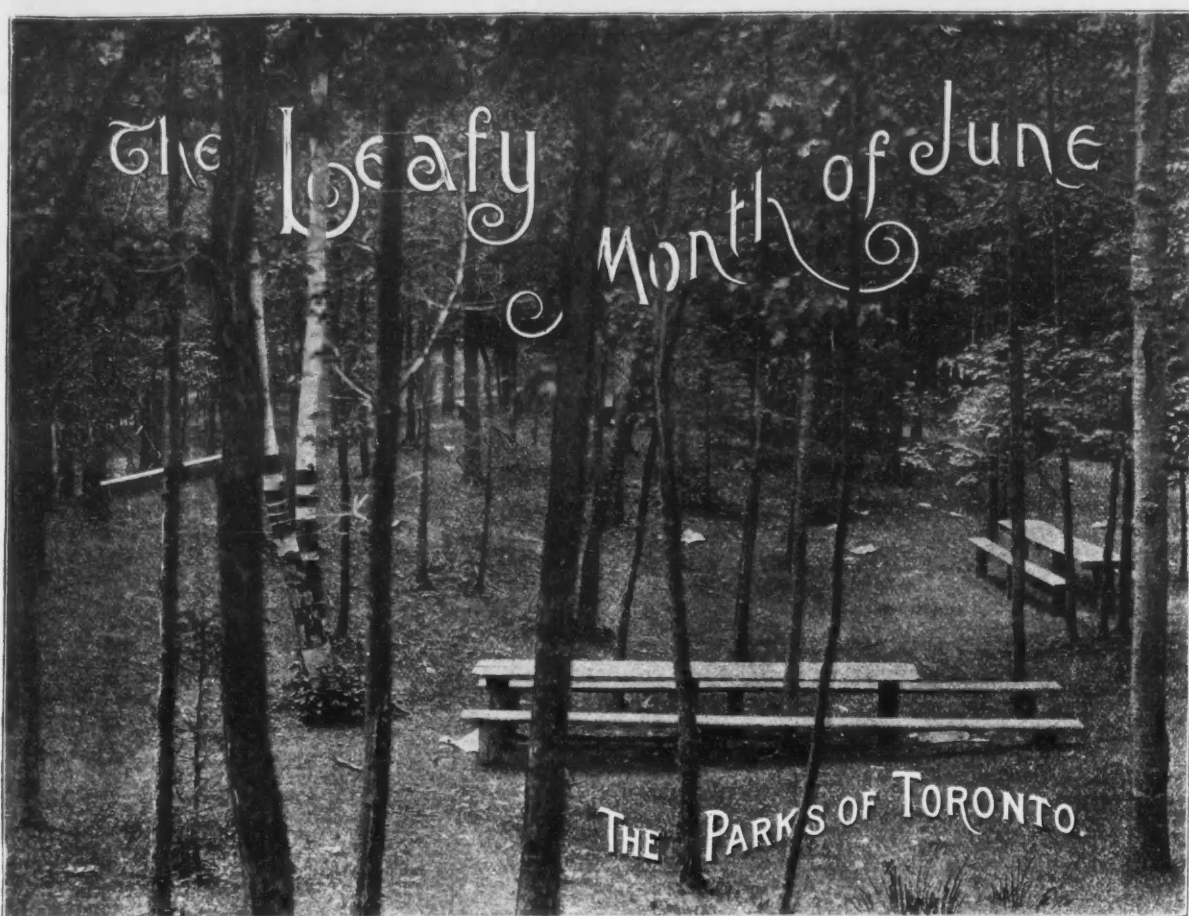 The Leafy
Month of June
THE PARKS OF TORONTO.